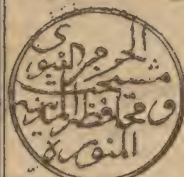 الحرم النبوى
مشيخت
و محافظ المدينه
المنوره